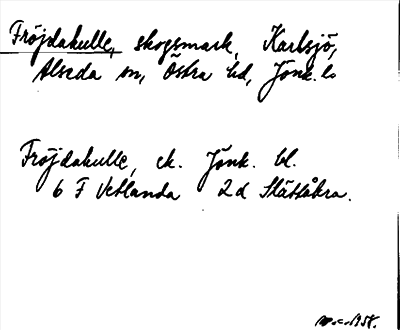 Fröjdakulle, skogsmark, Karlsjö,
Alseda sn, Östra hd, Jönk. l.
Fröjdakulle, ek. Jönk. bl.
6 F Vetlanda 2 d Slättåkra.